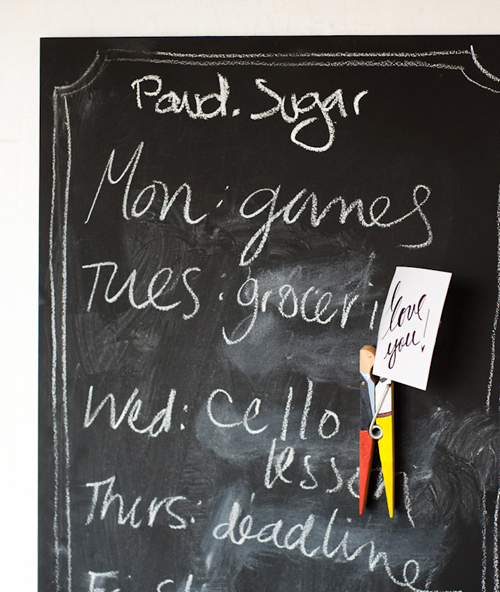 Powd. Sugar
Mon: games
Tues: groceri
love
you!
Wed: Cello
lesson
Thurs: deadline